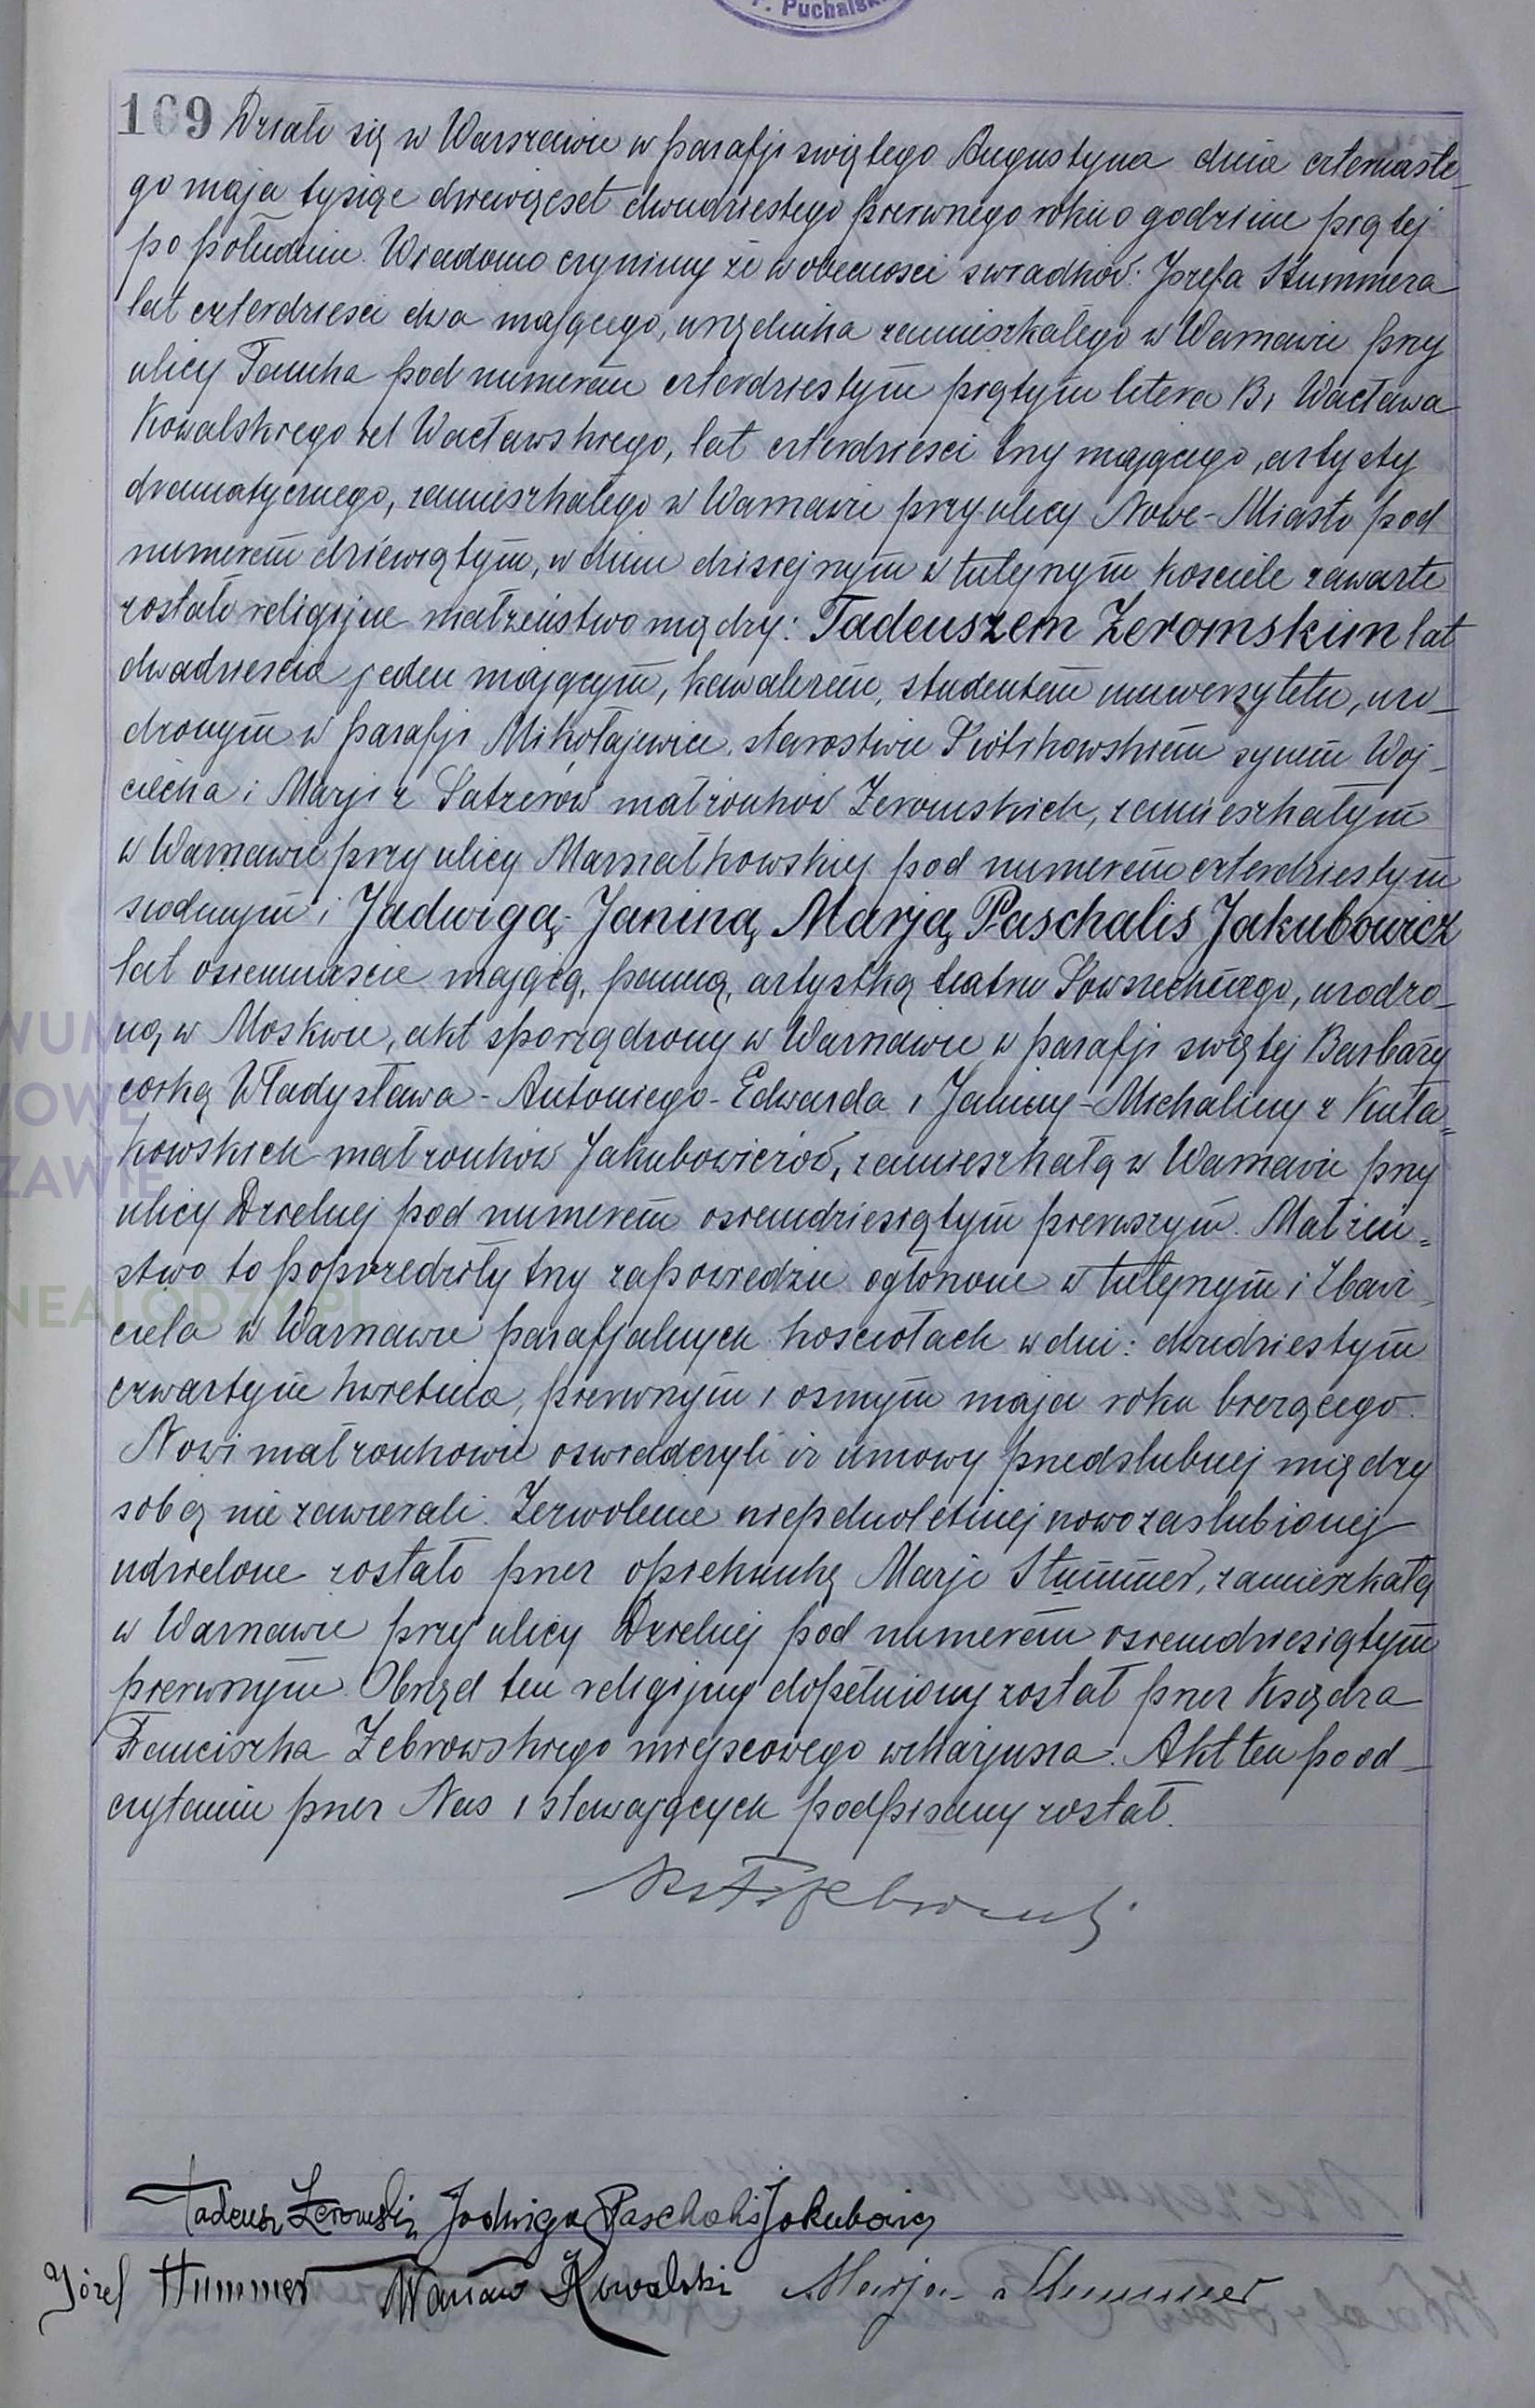 P. Puchalski
169 Działo się w Warszawie w parafji świętego Augustyna dnia czternaste-
go maja tysiąc dziewięćset dwudziestego pierwszego roku o godzinie piątej
po południu. Wiadomo czynimy że w obecności świadków: Józefa Stummera
lat czterdzieści dwa mającego, urzędnika zamieszkałego w Warszawie przy
ulicy Tamka pod numerem czterdziestym piątym litera B, Wacława
Kowalskiego vel Wacławskiego, lat czterdzieści trzy mającego, artysty
dramatycznego, zamieszkałego w Warszawie przy ulicy Nowe-Miasto pod
numerem dziewiątym, w dniu dzisiejszym w tutejszym kościele zawarte
zostało religijne małżeństwo między: Tadeuszem Żeromskim lat
dwadzieścia jeden mającym, kawalerem, studentem uniwersytetu, uro-
dzonym w parafji Mikołajewice, starostwie Piotrkowskiem synem Woj-
ciecha i Marji z Satzerów małżonków Żeromskich, zamieszkałym
w Warszawie przy ulicy Marszałkowskiej pod numerem czterdziestym
siódmym i Jadwigą-Janiną Marją Paschalis Jakubowicz
lat osiemnaście mającą, panną, artystką teatru Powszechnego, urodzo-
ną w Moskwie, akt sporządzony w Warszawie w parafji świętej Barbary
córką Władysława-Antoniego-Edwarda i Janiny-Michaliny z Kuła=
kowskich małżonków Jakubowiczów, zamieszkałą w Warszawie przy
ulicy Dzielnej pod numerem osiemdziesiątym pierwszym. Małżeń=
stwo to poprzedziły trzy zapowiedzie ogłoszone w tutejszym i Zbawi-
ciela w Warszawie parafjalnych kościołach w dni: dwudziestym
czwartym kwietnia, pierwszym i ósmym maja roku bieżącego.
Nowi małżonkowie oświadczyli iż umowy przedślubnej między
sobą nie zawierali. Zezwolenie niepełnoletniej nowozaślubionej
udzielone zostało przez opiekunkę Marję Stummer, zamieszkałą
w Warszawie przy ulicy Dzielnej pod numerem osiemdziesiątym
pierwszym. Obrzęd ten religijny dopełniony został przez Księdza
Franciszka Żebrowskiego miejscowego wikarjusza. Akt ten po od-
czytaniu przez Nas i stawających podpisany został.
Ks F Żebrowski
Tadeusz Żeromski Jadwiga Paschalis Jakubowicz
Józef Stummer Wacław Kowalski Marja Stummer
WUM
WOWE
ZAWIE
NEALODZY.PL